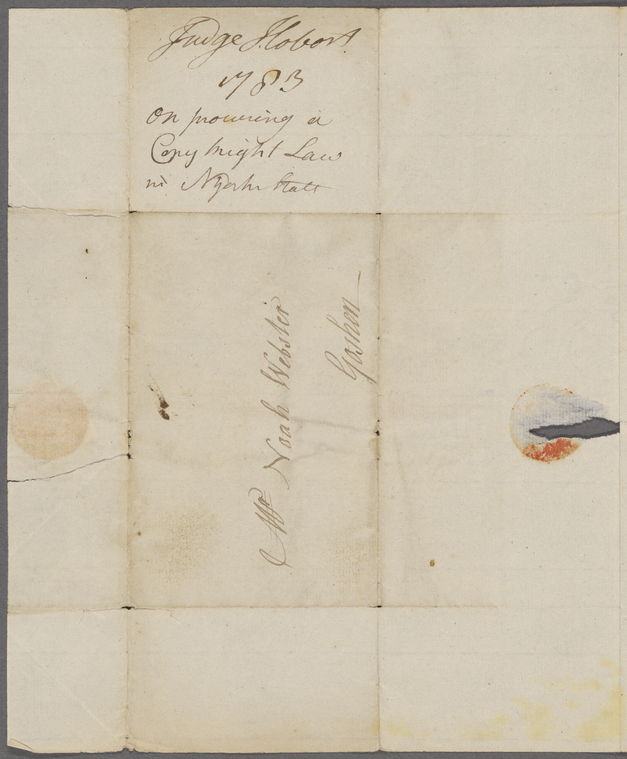 Judge Hobart
1783
On procuring a
Copy Right Law
in NYork State
Mr. Noah Webster
Goshen